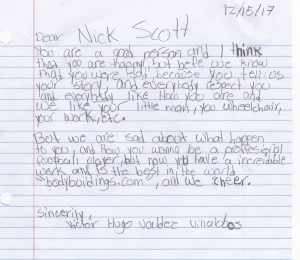 12/15/17
Dear Nick Scott
You are a good person and I think
that you are happy, but befe we know
that you were sad, because you tell us
your story, and everybody respect you
and everybody like how you are and
we like your little man, you wheelchair,
your work, etc.
Bot we are sad about what happen
to you, and how you wanna be a proffesional
football player, but now you have a increidable
work and is the best in the world
"bodybuildings.com", and we cheer.
Sincerily,
Victor Hugo Valdez